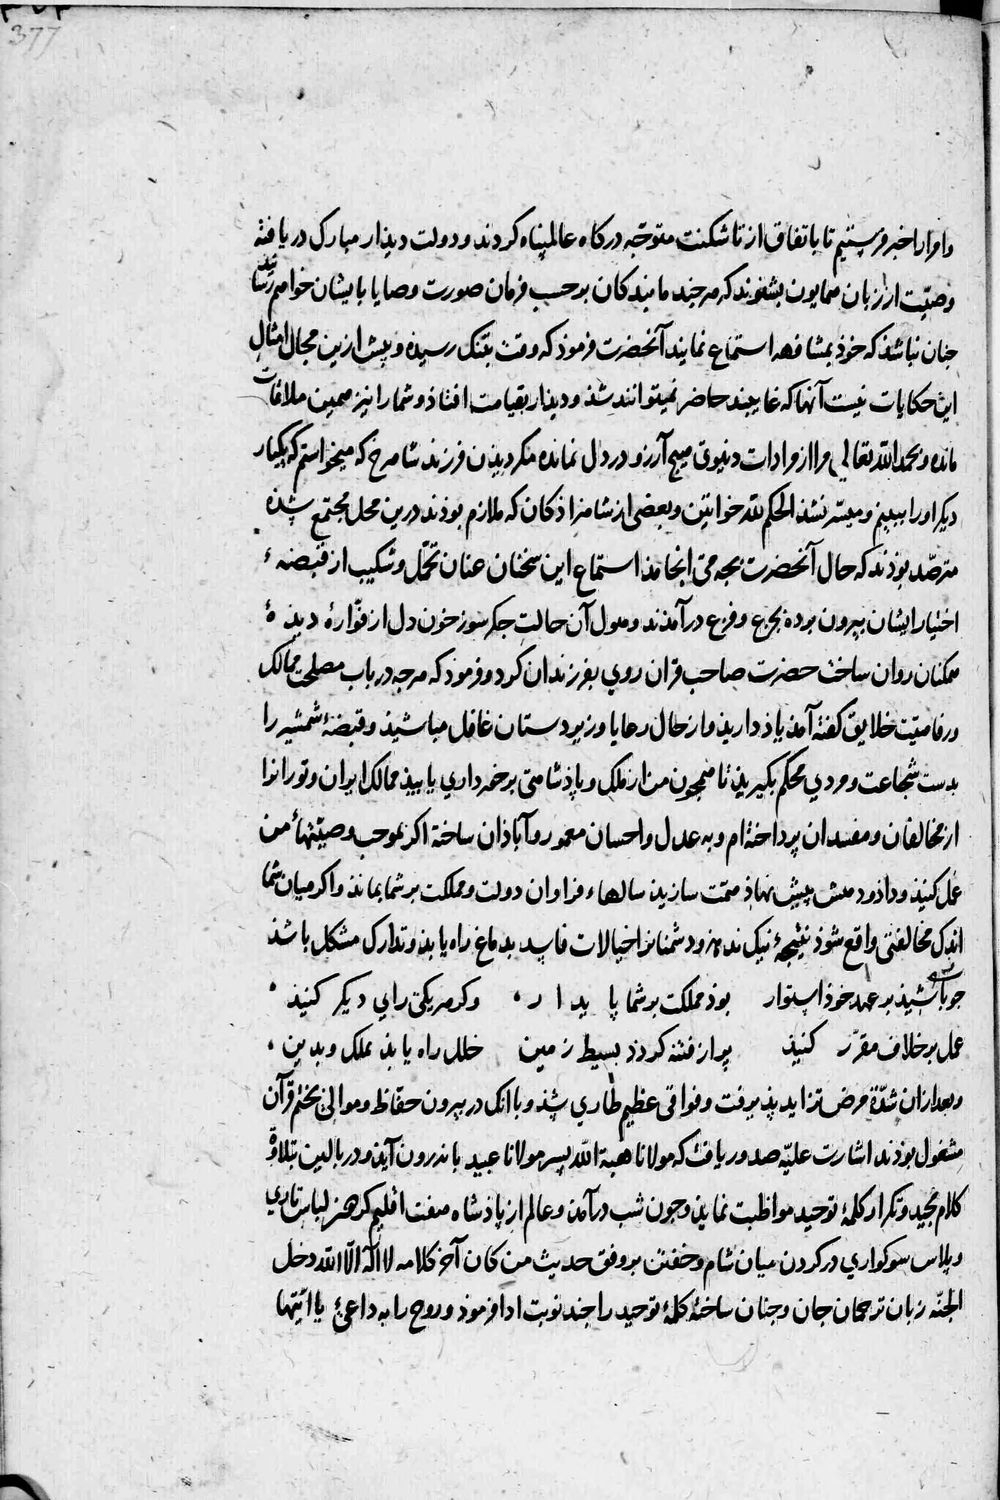 377
وامرا را خبر فرستیم تا باتفاق از تاشکنت متوجّه درکاه عالمپناه کردند و دولت دیذار مبارک دریافته
وصیّت از زبان همایون بشنوند که هرجند ما بندکان برحسب فرمان صورت وصایا بایشان خواهم رسانید
جنان نباشذ که خوذ بمشافهه استماع نمایند آنحضرت فرموذ که وقت بتنک رسیده و بیش ازین مجال امثال
این حکایات نیست آنها که غایبند حاضر نمیتوانند شذ و دیذار بقیامت افتاذ و شما را نیز همین ملاقات
مانده و بحمد الله تعالی مرا از مرادات دنیوی هیچ آرزو در دل نمانده مکر دیذن فرزند شاهرخ که میخواستم که یکبار
دیکر او را ببینم و میسّر نشذ الحکم لله خواتین و بعضی از شاهزاذکان که ملازم بوذند درین محل مجتمع شذه
مترصّد بوذند که حال آنحضرت بجه می انجامذ استماع این سخنان عنان تحمّل و شکیب از قبضهٔ
اختیار ایشان بیرون برده بجزع و فزع درآمذند و هول آن حالت جکر سوز خون دل از فوّارهٔ دیذهٔ
همکنان روان ساخت حضرت صاحب قران روی بفرزندان کرد و فرموذ که هرجه در باب مصلحت ممالک
و رفاهیّت خلایق کفته آمذ یاذ دارید و از حال رعایا و زیردستان غافل مباشیذ و قبضهٔ شمشیر را
بدست شجاعت و مردی محکم بکیریذ تا همجون من از ملک و پاذشاهی برخورداری یابید ممالک ایران و توران را
از مخالفان و مفسدان پرداخته ام و به عدل و احسان معمور و آباذان ساخته اکر بموجب وصیّتهاء من
عمل کنیذ و داذ و دهش پیش نهاذ همّت سازیذ سالهاء فراوان دولت و مملکت بر شما بمانذ و اکر میان شما
اندک مخالفتی واقع شوذ نتیجهٔ نیک ندهذ و دشمنان را خیالات فاسد بدماغ راه یابذ و تدارک مشکل باشذ
جو باشیذ بر عهد خوذ استوار بوذ مملکت بر شما پایدار وکر هریکی رای دیکر کنیذ
عمل بر خلاف مقرّر کنیذ پر از فتنه کردذ بسیط زمین خلل راه یابذ بملک و بدین
و بعد ازان شدّة مرض تزاید پذیرفت و فواقی عظیم طاری شذ و با انک در بیرون حفّاظ و موالی بختم قرآن
مشغول بوذند اشارت علیّه صدور یافت که مولانا هبة الله پسر مولانا عبید باندرون آیذ و در بالین بتلاوة
کلام مجید و تکرار کلمهٔ توحید مواظبت نمایذ و جون شب درآمذ و عالم از پاذشاه هفت اقلیم کرهز لباس تاری
و پلاس سوکواری در کردن میان شام و خفتن بر وفق حدیث من کان آخر کلامه لا اله الّا الله دخل
الجنّه زبان ترجمان جان و جنان ساخته کلمهٔ توحید را جند نوبت ادا فرموذ و روح را به داعیٔ یا ایّتها